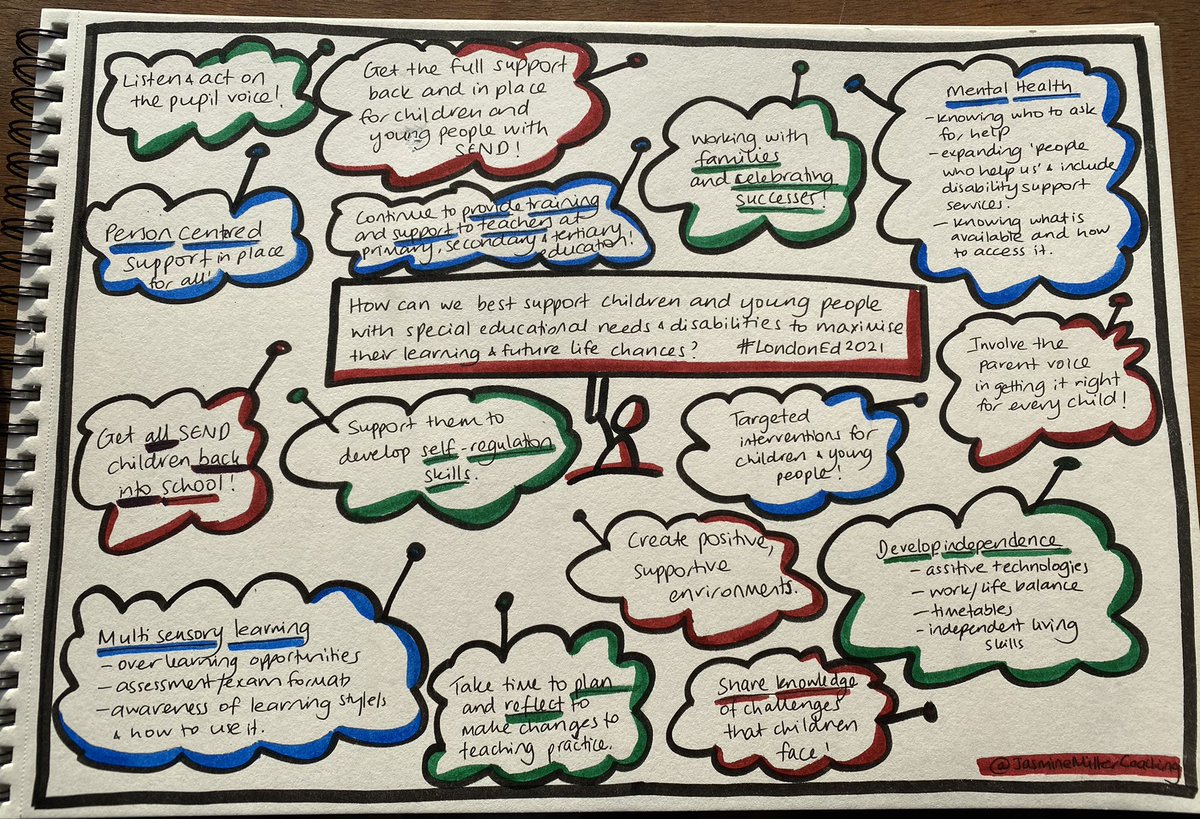 Listen & act on
the pupil voice!
Get the full support
back and in place
for children and
young people with
SEND!
Working with
families
and celebrating
successes!
Mental Health
- knowing who to ask
for help
- expanding 'people
who help us' & include
disability support
services.
- knowing what is
available and how
to access it.
Person centred
support in place
for all!
Continue to provide training
and support to teachers at
primary, secondary & tertiary
education!
How can we best support children and young people
with special educational needs & disabilities to maximise
their learning & future life chances? #LondonEd2021
Involve the
parent voice
in getting it right
for every child!
Get all SEND
children back
into school!
Support them to
develop self-regulation
skills.
Targeted
interventions for
children & young
people!
Create positive,
supportive
environments.
Develop independence
- assitive technologies
- work/life balance
- timetables
- independent living
skills
Multi sensory learning
- over learning opportunities
- assessment/exam formats
- awareness of learning style/s
& how to use it.
Take time to plan
and reflect to
make changes to
teaching practice.
Share knowledge
of challenges
that children
face!
@JasmineMillerCoaching